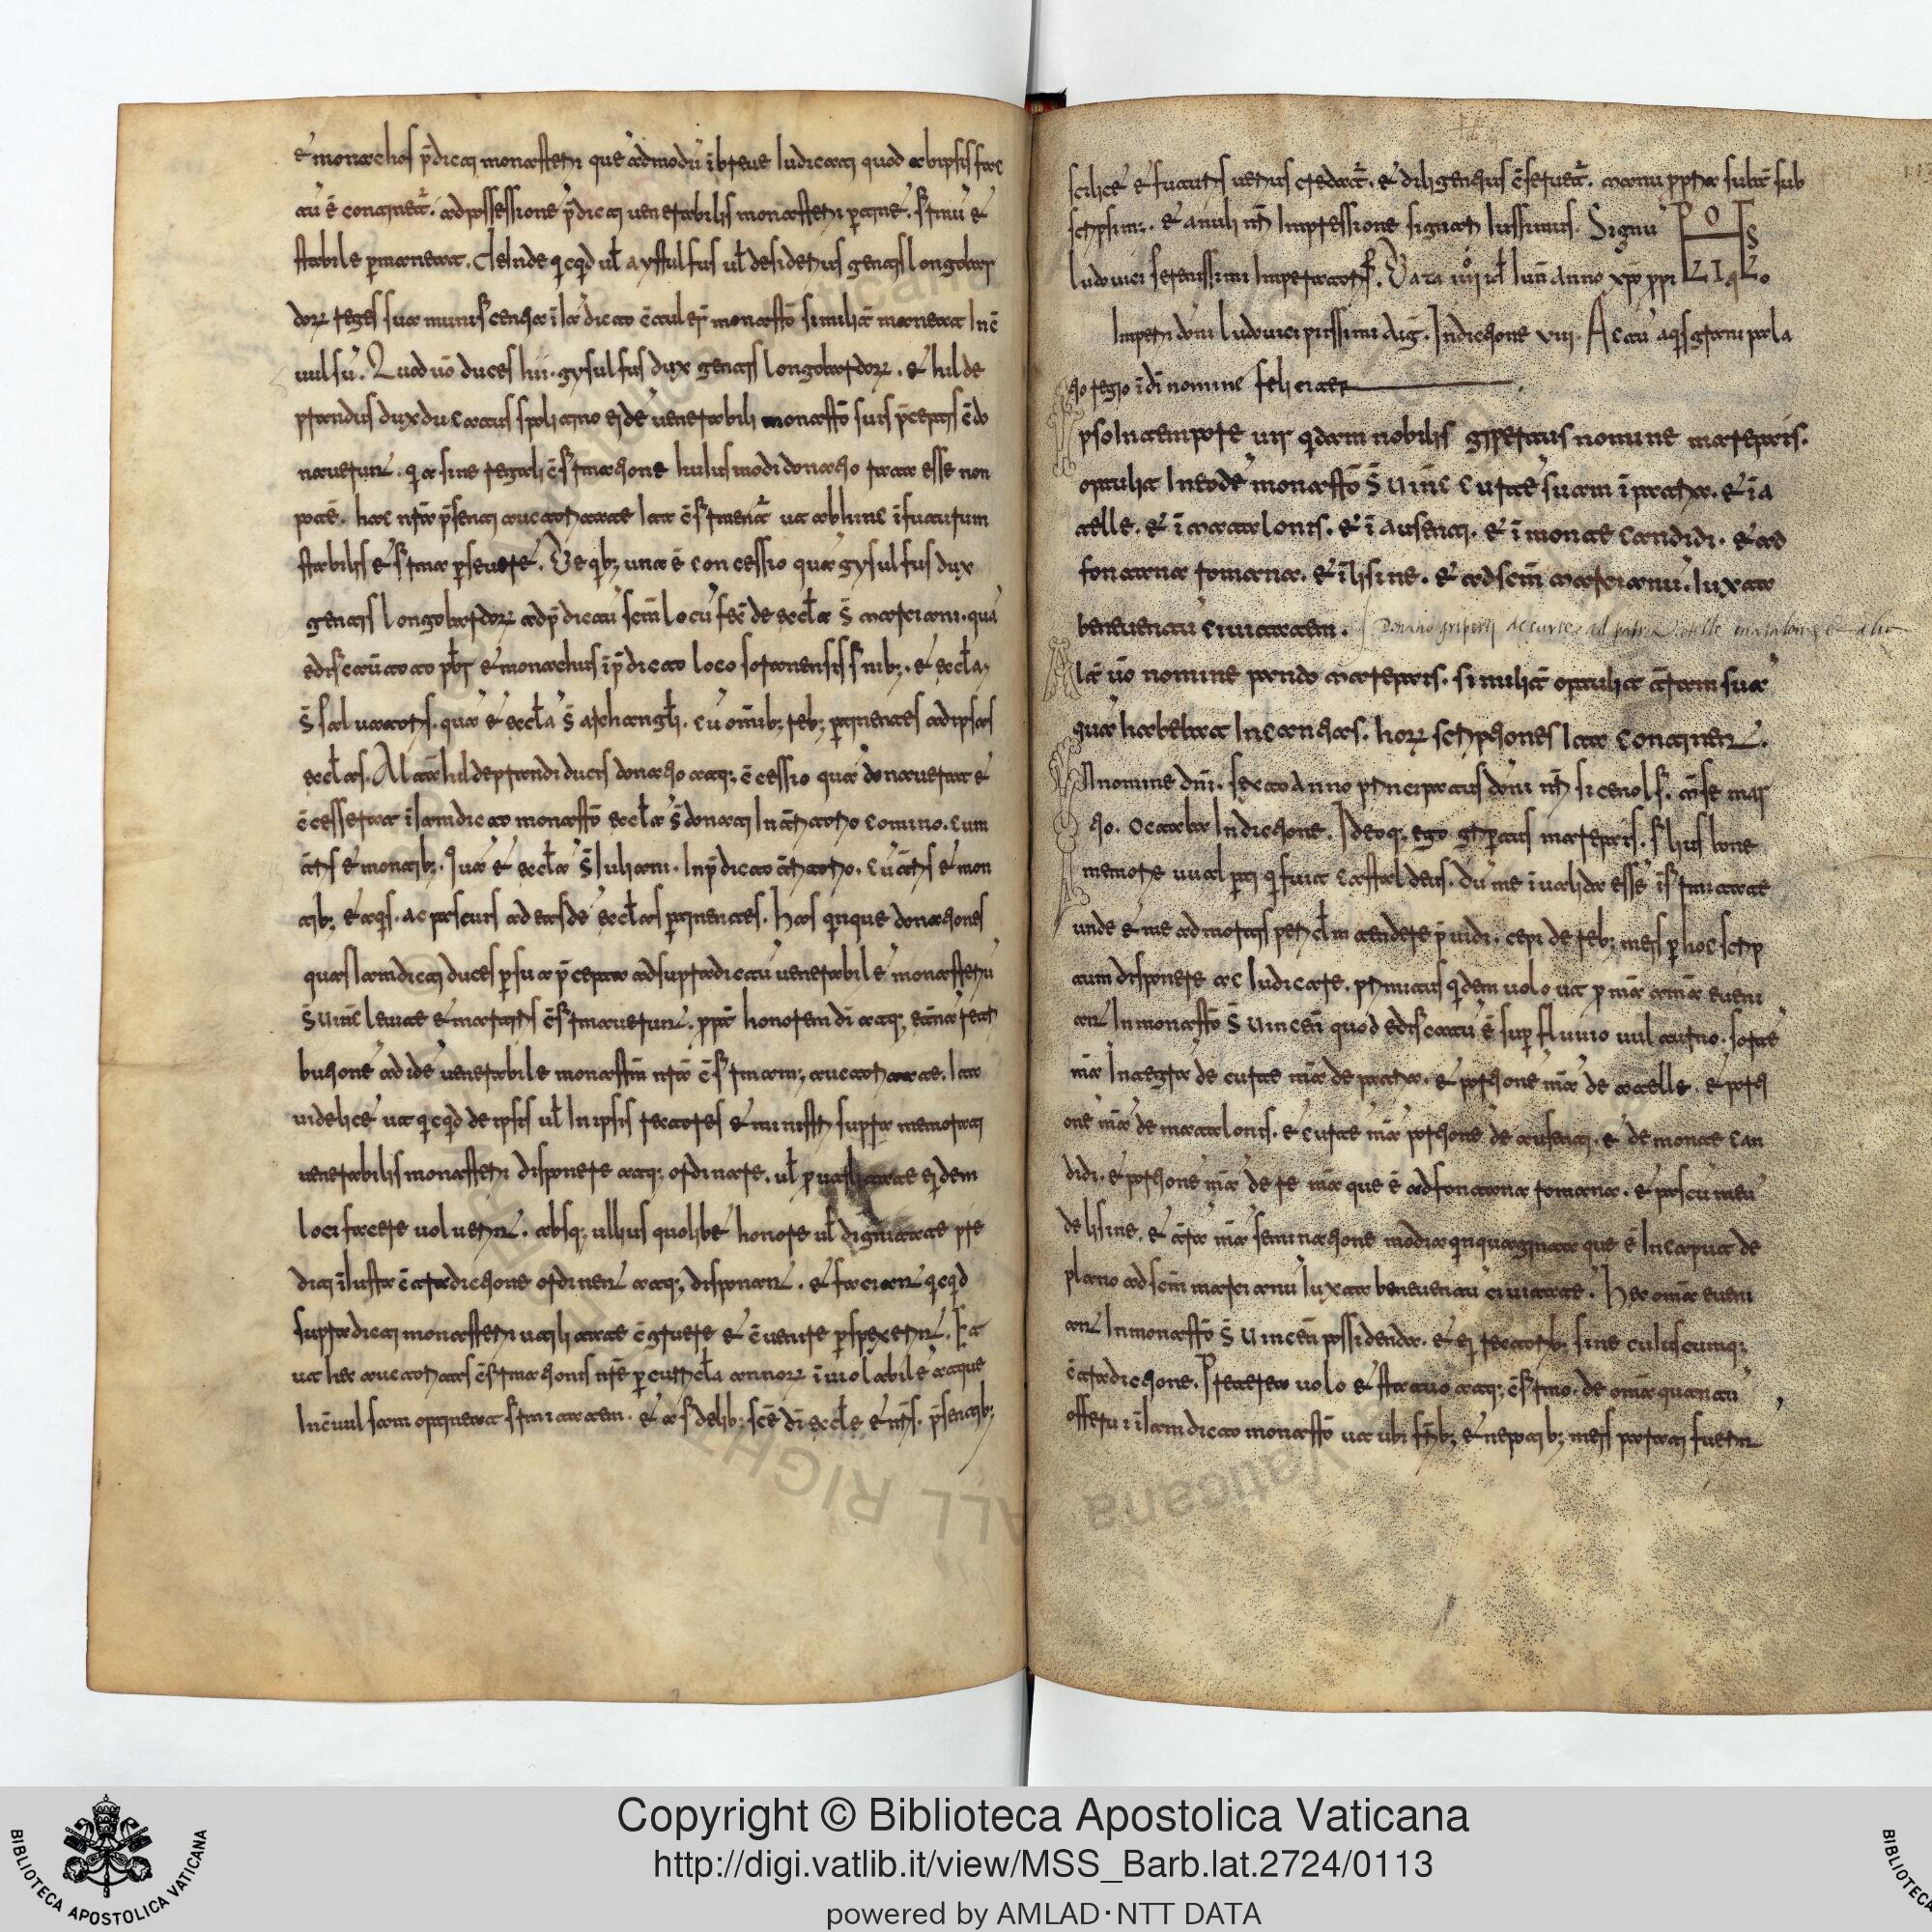 & monachos p̄dicti monasterii que admodū ībreve Iudicati quod ab ipsis fac
tū ē continet᷑. ad possessionē p̄dicti venerabilis monasterii ꝑtine. firmū &
stabile ꝑmaneat. Deinde qcqd ul̄ aystulfus ul̄ desiderius gentis longobar
doꝝ reges sua munificentia ī iā dicto
uulsū. Quod uō duces hii. gysulfus dux gentis longobardoꝝ. & hilde
prandus dux ducatus spolitino eidē venerabili monastō suis p̄ceptis
naverunt. qa sine regali c̄firmatione huiusmodi donatio rata esse non
potē. hac nr̄a p̄senti auctoritate ita c̄firment᷑ ut abhinc ī futurum
stabilis & firma ꝑseveret. De qb; una ē concessio quā gysulfus dux
gentis longobardoꝝ ad p̄dictū scm̄ locū fec̄ de eccl̄a S̄ Marciani. quā
edificaū tato pb̄r & monachus ī p̄dicto loco soranensis finib;. & eccl̄a
S̄ salvatoris. quā & eccl̄a S̄ archangl̄i. cū omīb; reb; ꝑtinentes ad ipsas
eccl̄as. Alia hildeprandi ducis donatio atq; c̄cessio quā donaverat &
c̄cesserat ī iam dicto monastō eccl̄a S̄ donati In comino. cum
& montib;. Quā & eccl̄a S̄ Iuliani. In p̄dicto & mon
tib; & aqis. ac pascuis ad easdē eccl̄as ꝑtinentes. has qinque donationes
quas iamdicti duces ꝑ sua p̄cepta ad supradictū venerabile monasteriū
S̄ Uinc̄ levite & martyris c̄firmaverunt. ꝓpt̄ honorem di atq; et̄na retri
butionē ad idē venerabile monastm̄ nr̄a c̄firmam; auctoritate. Ita
videlicē ut qcqd de ipsis ul̄ In ipsis rectores & ministri supra memorati
venerabilis monasterii disponere atq; ordinare. ul̄ ꝓ utilitate eidem
loci facere voluerin. absq; ullius quolibē honore ul̄ dignitate pre
dicti ī iusta c̄tradictione ordinen atq; disponan. & facian qcqd
supradicti monasterii utilitate c̄gruere & c̄venire ꝑspexerin. Et
ut hec auctoritas c̄firmationis nr̄e ꝑ curricl̄a annoꝝ īviolabile atque
Inc̄vulsam optineat firmitatem. & a fidelib; scē di eccl̄e & nr̄is. p̄sentib;
scilicē & futuris verius credat᷑. & diligentius c̄servet᷑. manu ꝓpria subt̄ sub
scripsim;. & anuli nr̄i Impressione signari Iussimus. Signū
Ludovici serenissimi Imperatoris. Data iiii id Iun̄ Anno xpō ppi
Imperii domi Ludovici piissimi Aug̅. Indictione viii. Actū aqisgrani pala
tio regio ī dī nomine feliciter.
Ipso In tempore vir qidam nobilis gripertus nomine marepais.
optulit In eodē monastō S̄ Uinc̄ curte suam ī patria. & ī a
telle. & ī matalonis. & ī ausenti. & ī monte candidi. & ad
fontana romana. & ī lisine. & ad scm̄ martianū. Iuxta
beneventū civitatem.
Aliā uō nomine pando marepais. similit̄ optulit suā
quā habebat In cantias. hoꝝ scriptiones ita continen.
In nomine dni. sexto Anno principatus domi nr̄i sicenolf. mar
tio. Octaba Indictione. Ideoq; ego gripertus marepais. filius bone
memorie uualperti q fuit castaldeus. dū me ī valida esse īfirmitate
unde & me ad mortis pericl̄m tendere p̄vidi. cepi de reb; meis ꝑ hoc scrip
tum disponere ac Iudicare. primitus qidem volo ut ꝓ mā aīa eveni
an In monastō S̄ Uincen̄ quod edificatū ē sup̄ fluvio vulturno. sorte
mā Integra de curte mā de patria. & portione mā de atelle. & porti
one mā de matalonis. & curte mā portione de ausenti. & de monte can
didi. & portione mā de re mā que ē ad fontana romana. & pascū meū
de lisine. & mā seminatione modia qinquaginta que ē In caput de
plano ad scm̄ martianū Iuxta beneventū civitate. Hec omīa eveni
an In monastō S̄ Uincen̄ possidenda. & ei rectorib; sine cuiuscumq;
c̄tradictione. Preterea volo & statuo atq; c̄firmo. de omīa quantū
offerui ī iamdicto monastō ut ubi & nepotib; meis parati fuerin
Copyright © Biblioteca Apostolica Vaticana
http://digi.vatlib.it/view/MSS_Barb.lat.2724/0113
powered by AMLAD·NTT DATA
BIBLIOTECA APOSTOLICA VATICANA